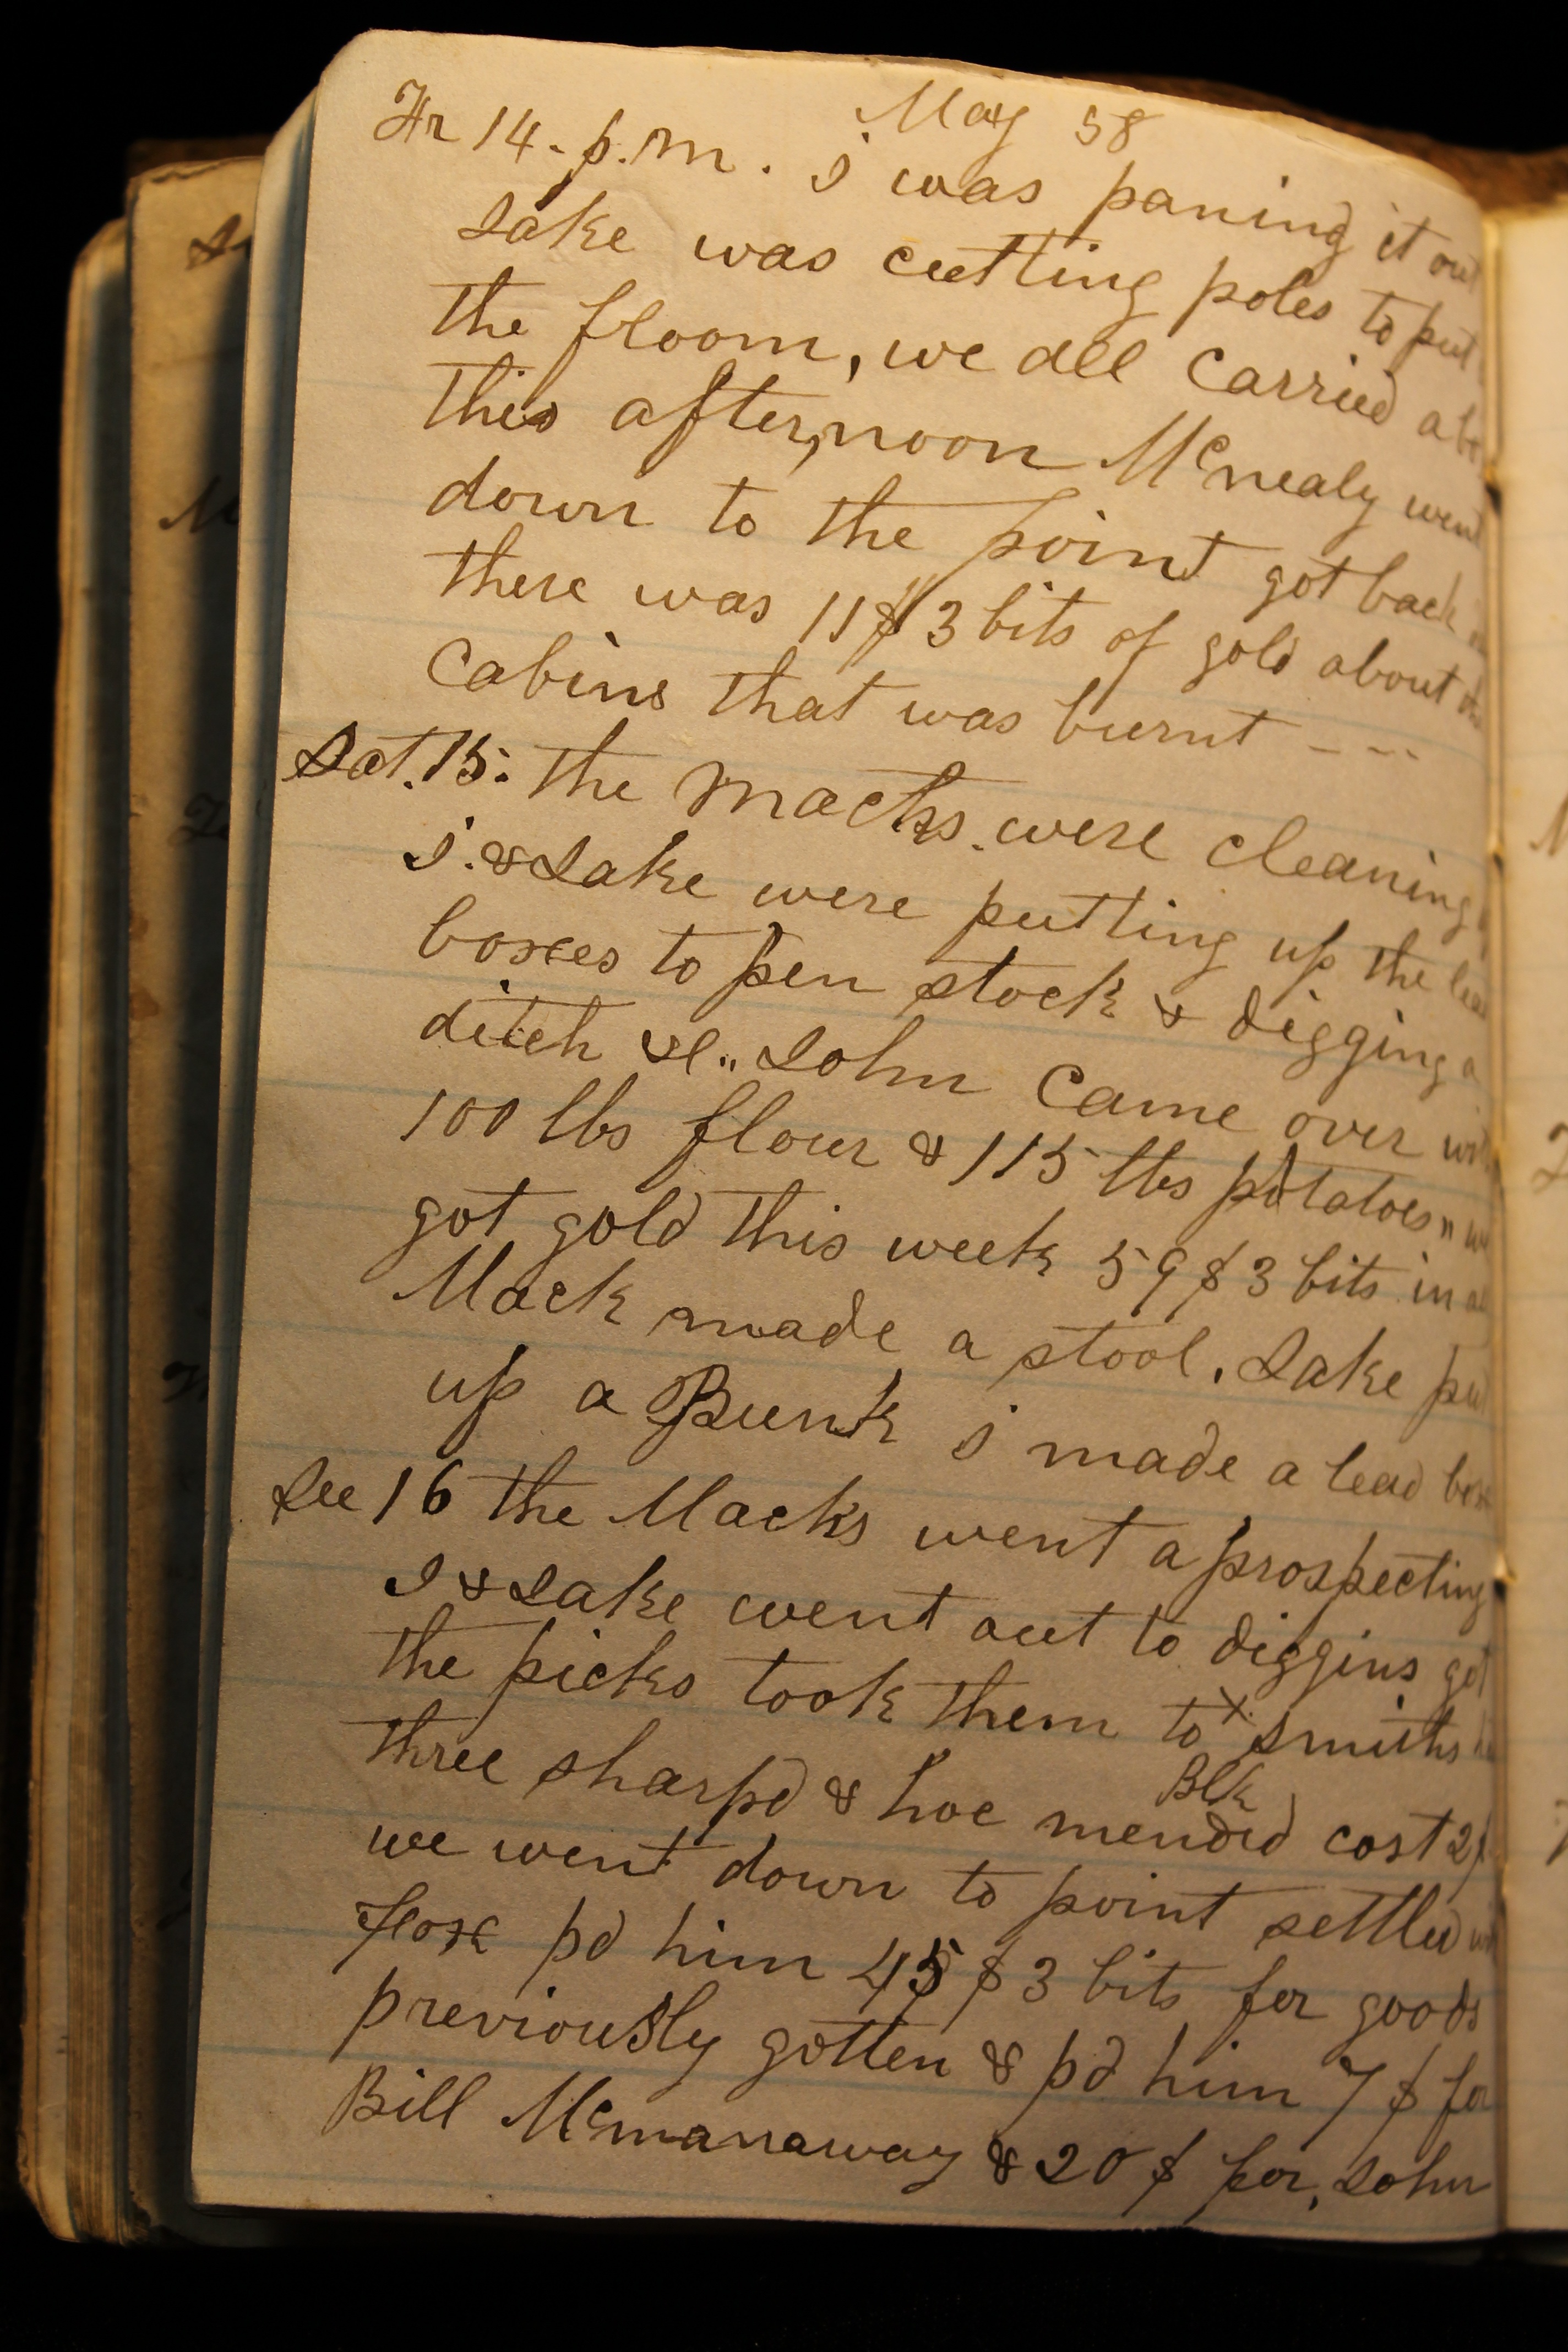 May 58
Fr 14. p.m. i was paning it out
Jake was cutting poles to put
the floom, we all carried
this after,noon McNealy went
down to the point got back
there was 11$ 3 bits of gold about
Cabins that was burnt - - -
Sat. 15. the Macks were cleaning
i. & Jake were putting up the
boxes to pen stock & digging a
ditch &c.. John Came over
100 lbs flour & 115 lbs potatoes "
got gold this week 59$ 3 bits in
Mack made a stool. Jake put
up a Bunk i made a lead box
Su 16 the Macks went a prospecting
I & Jake went out to diggins got
the picks took them to x smiths
Blk
three sharpd & hoe mended cost 2$
we went down to point settled
Flox pd him 45$ 3 bits for goods
previously gotten & pd him 7$ for
Bill Mcmanaway & 20$ for, John